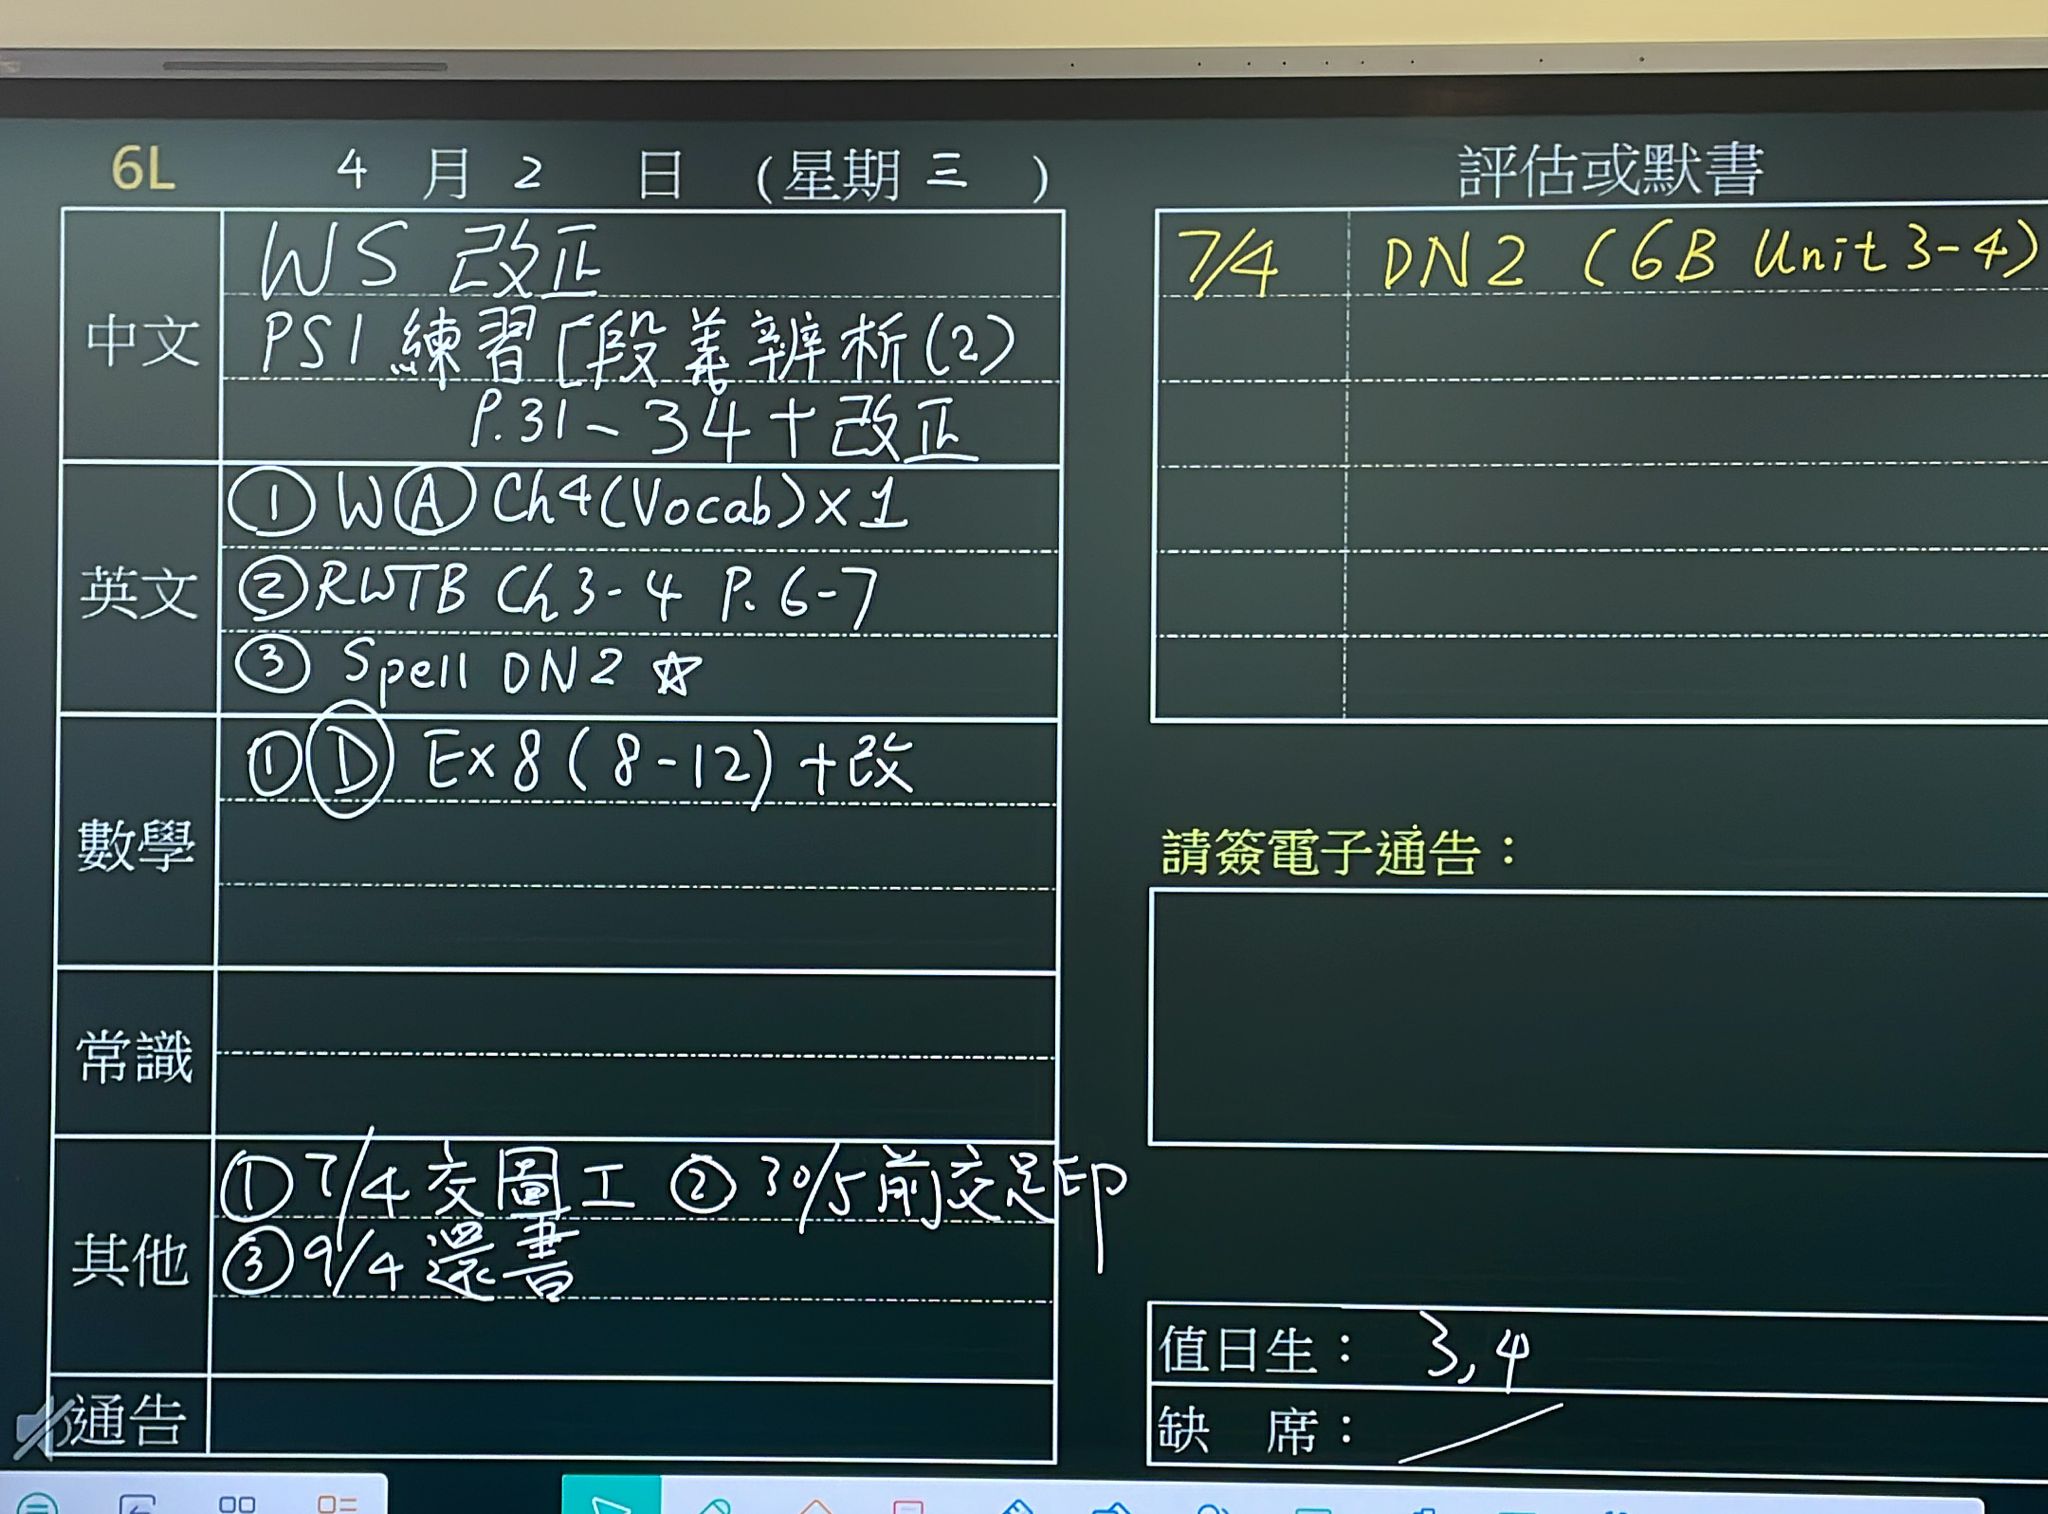 6L 4月2日(星期三)
中文
WS 改正
PS1 練習「段義辨析(2)
P.31~34+改正
英文
① WⒶ Ch4(Vocab)×1
② RWTB Ch3-4 P.6-7
③ Spell DN2 ☆
數學
①Ⓓ Ex8(8-12)+改
常識
其他
①7/4交圖工 ②30/5前交足印
③9/4還書
通告
評估或默書
7/4 DN2 (6B Unit 3-4)
請簽電子通告：
值日生： 3,4
缺 席： /